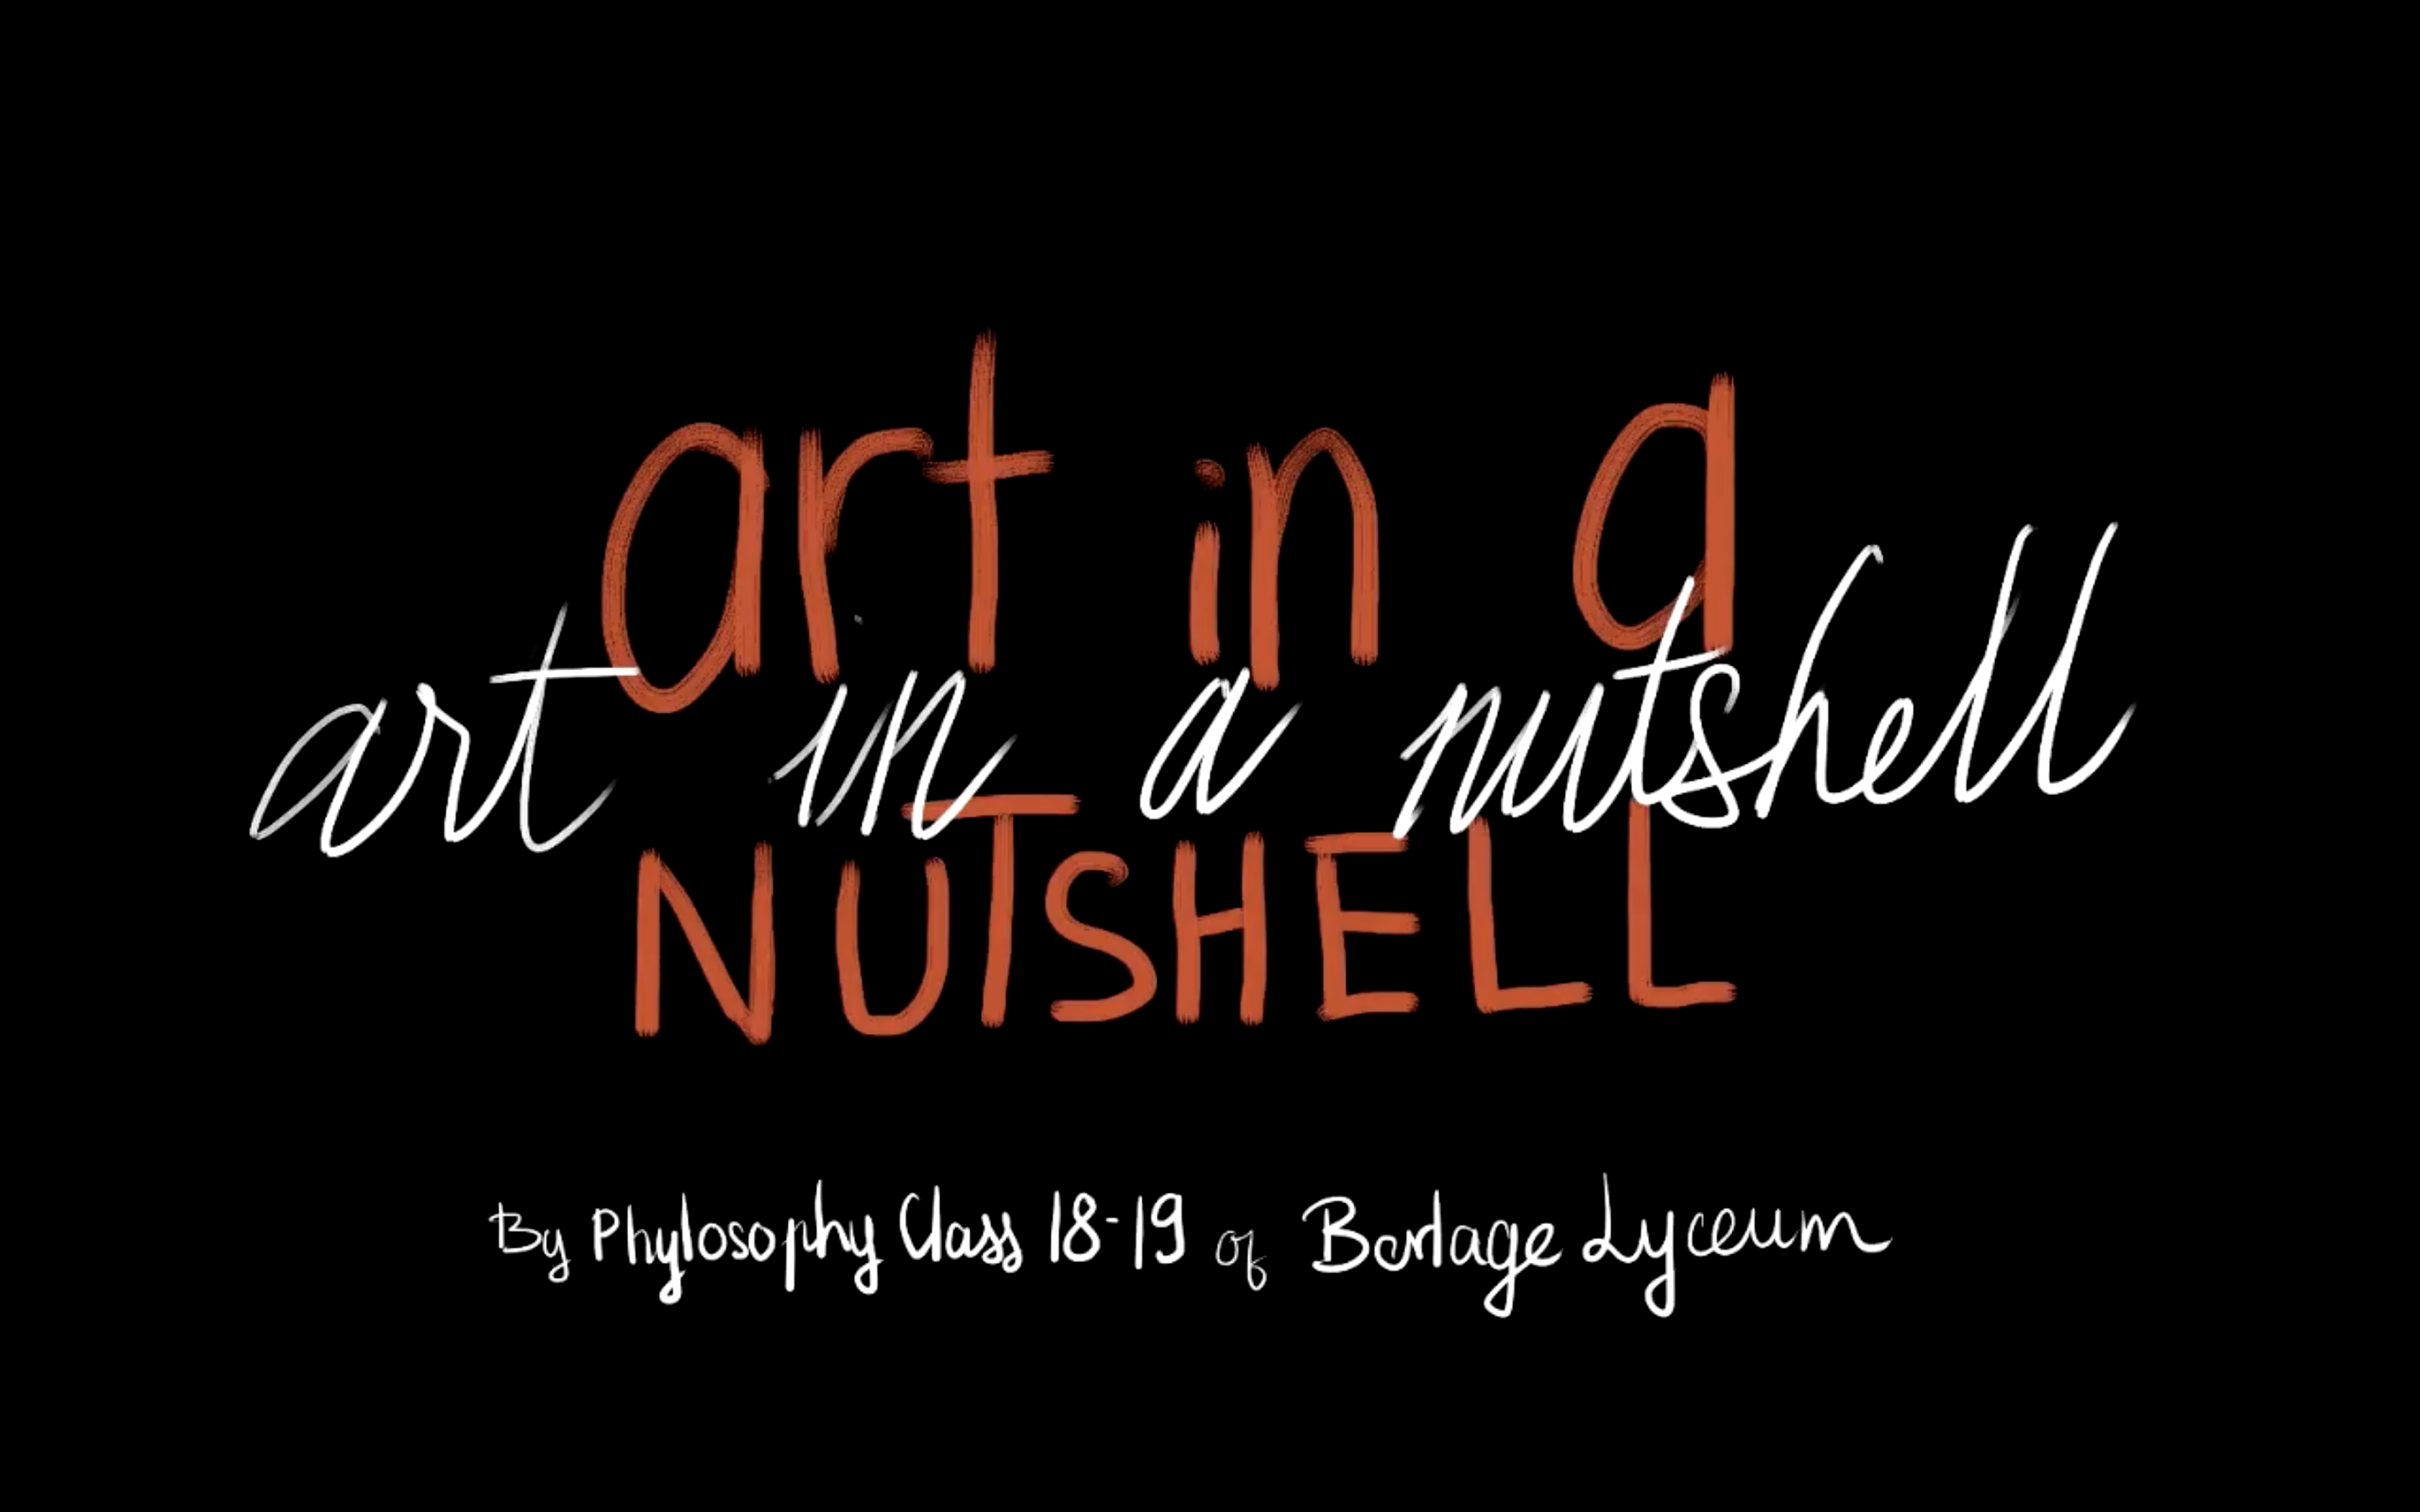 art in a
art in a nutshell
NUTSHELL
By Phylosophy Class 18-19 of Berlage Lyceum